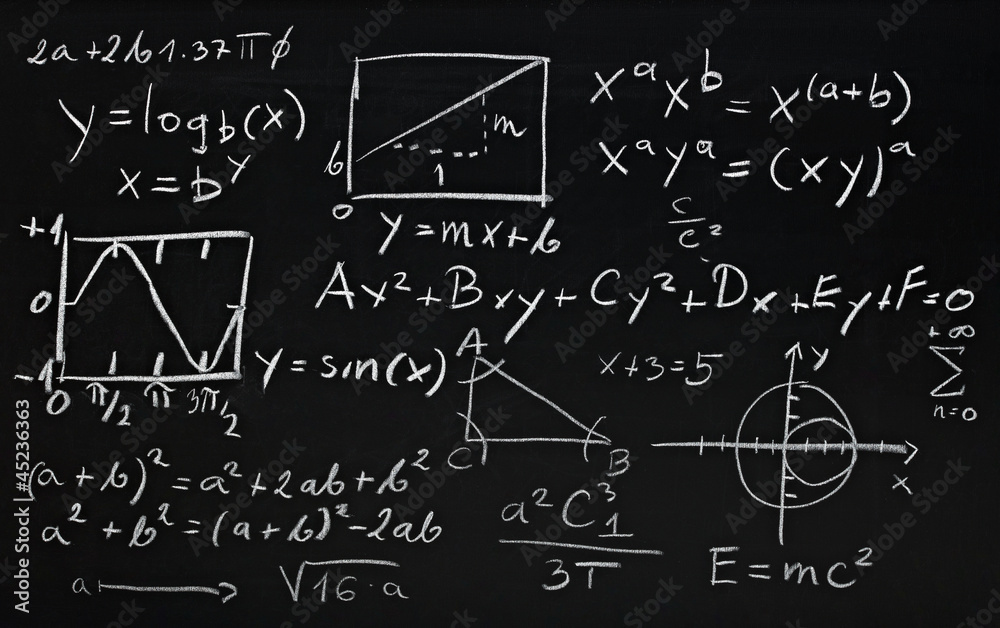 2a+2b 1.37πφ
y=log_b(x)
x=b^y
b
m
1
0
y=mx+b
x^a x^b = x^(a+b)
x^a y^a = (xy)^a
c/c²
+1
0
-1
0 π/2 π 3π/2
y=sin(x)
Ax²+Bxy+Cy²+Dx+Ey+F=0
A
C
B
x+3=5
y
x
+∞
∑
n=0
(a+b)²=a²+2ab+b²
a²+b²=(a+b)²-2ab
a
√16·a
a²C₁³
3T
E=mc²
Adobe Stock | #45236363
Adobe Stock